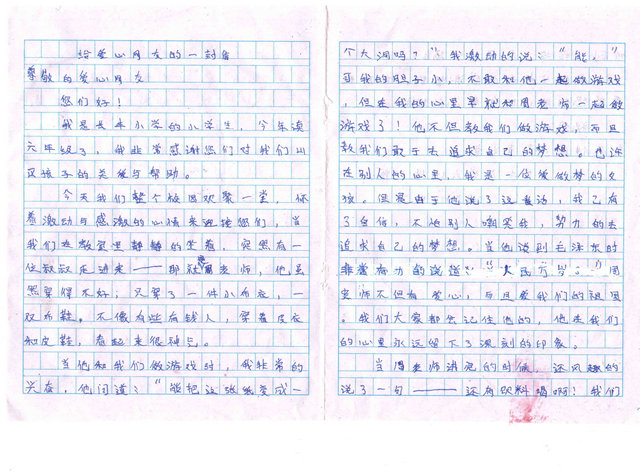 给爱心网友的一封信
尊敬的爱心网友
您们好！
我是长丰小学的小学生，今年读
六年级了，我非常感谢您们对我们山
区孩子的关爱与帮助。
今天我们整个校园欢聚一堂，怀
着激动与感激的心情来迎接您们，当
我们在教室里静静的坐着，突然有一
位叔叔走进来——那就是周老师，他虽
然穿得不好，只穿了一件小布衣，一
双布鞋。不像有些有钱人，穿着皮衣
和皮鞋，看起来很神气。
当他和我们做游戏时，我非常的
兴奋，他问道：“能把这张纸变成一
个大洞吗？”我激动的说：“能。”
可我的胆子小，不敢和他一起做游戏
，但在我的心里早就和周老师一起做
游戏了！他不但教我们做游戏，而且
教我们敢于去追求自己的梦想。也许
在别人的心里，我是一位爱做梦的女
孩。但是由于他说了这番话，我已有
了自信，不怕别人嘲笑我，努力的去
追求自己的梦想。当他说到毛泽东时
非常有力的说道：“人民万岁！”周
老师不但有爱心，与且爱我们的祖国
。我们大家都会记住他的，他在我们
的心里永远留下了深刻的印象。
当周老师讲完的时候，还风趣的
说了一句——还有饮料喝啊！我们